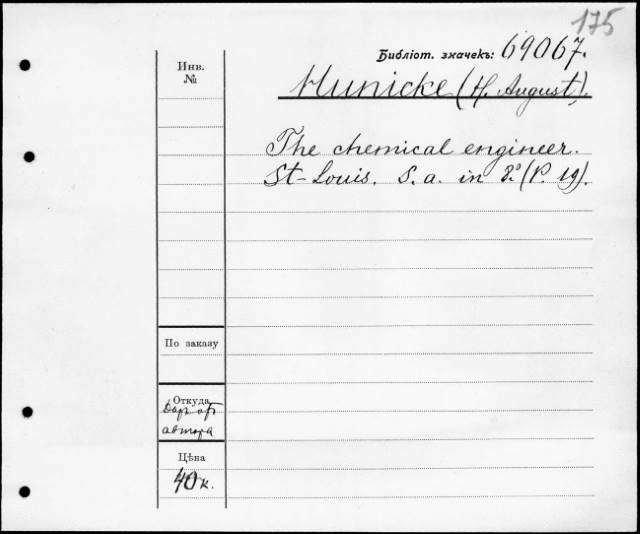 175
Библіот. значекъ: 69067.
Инв.
№
Hunicke (H. August).
The chemical engineer.
St-Louis. S. a. in 8.º (P. 19).
По заказу
Откуда
Даръ отъ
автора
Цѣна
40 к.